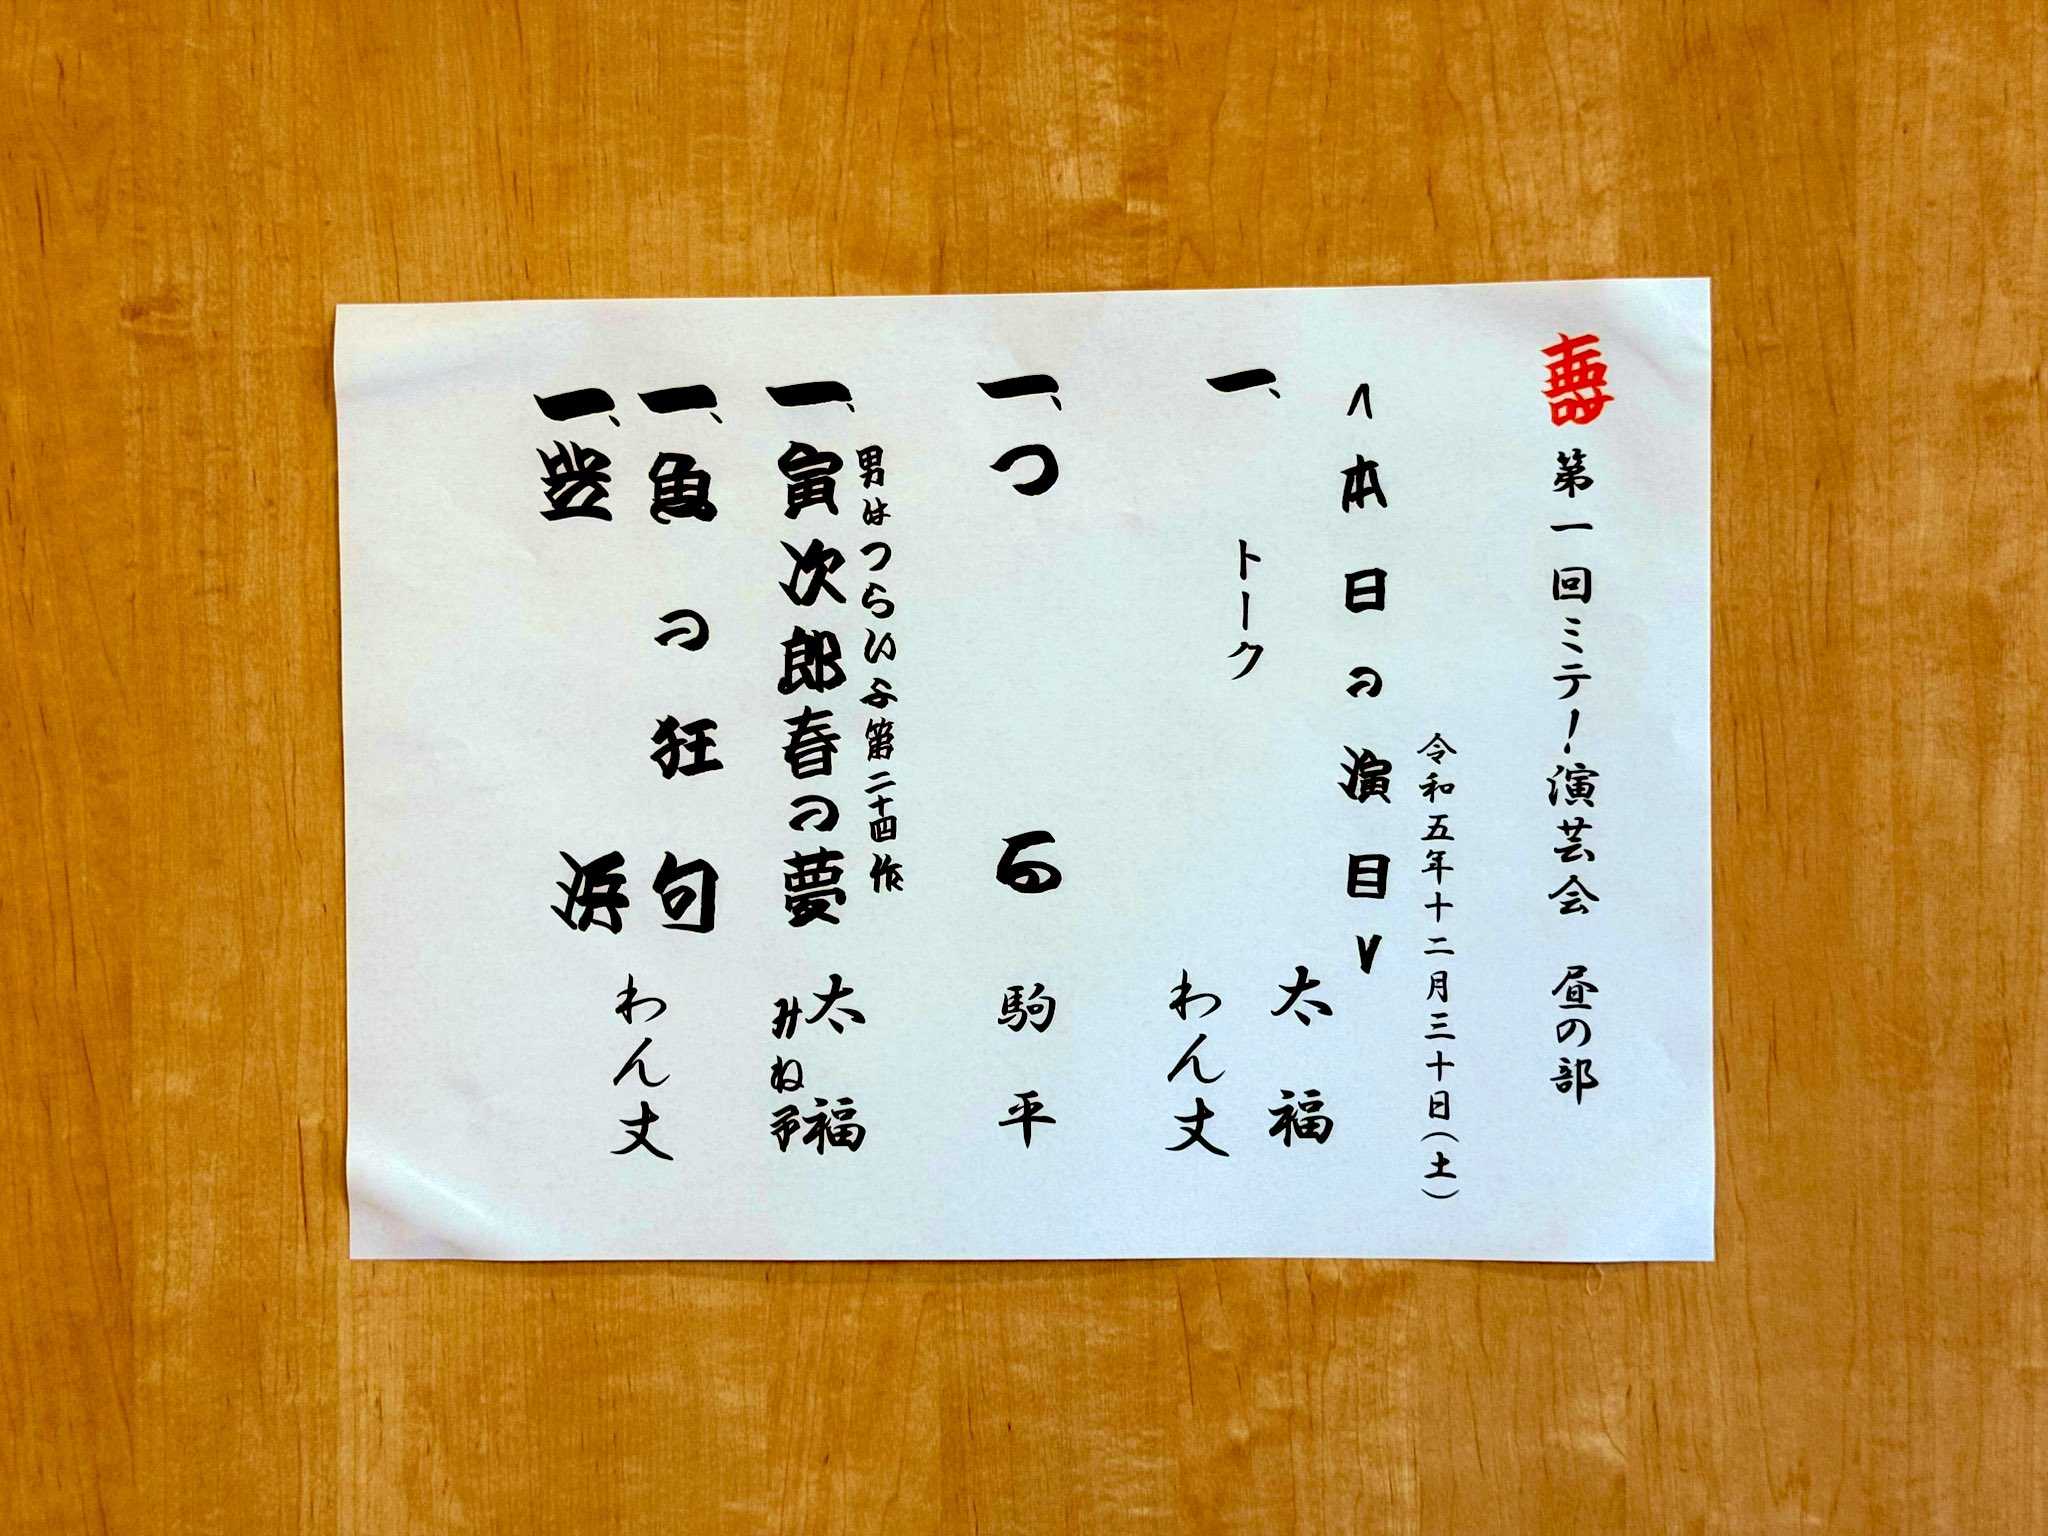 壽 第一回ミテ！演芸会 昼の部
令和五年十二月三十日（土）
＜本日の演目＞
一、トーク 太福 わん丈
一、つる 駒平
一、男はつらいよ第二十四作 寅次郎春の夢 太福 みね子
一、魚の狂句
一、柴浜 わん丈